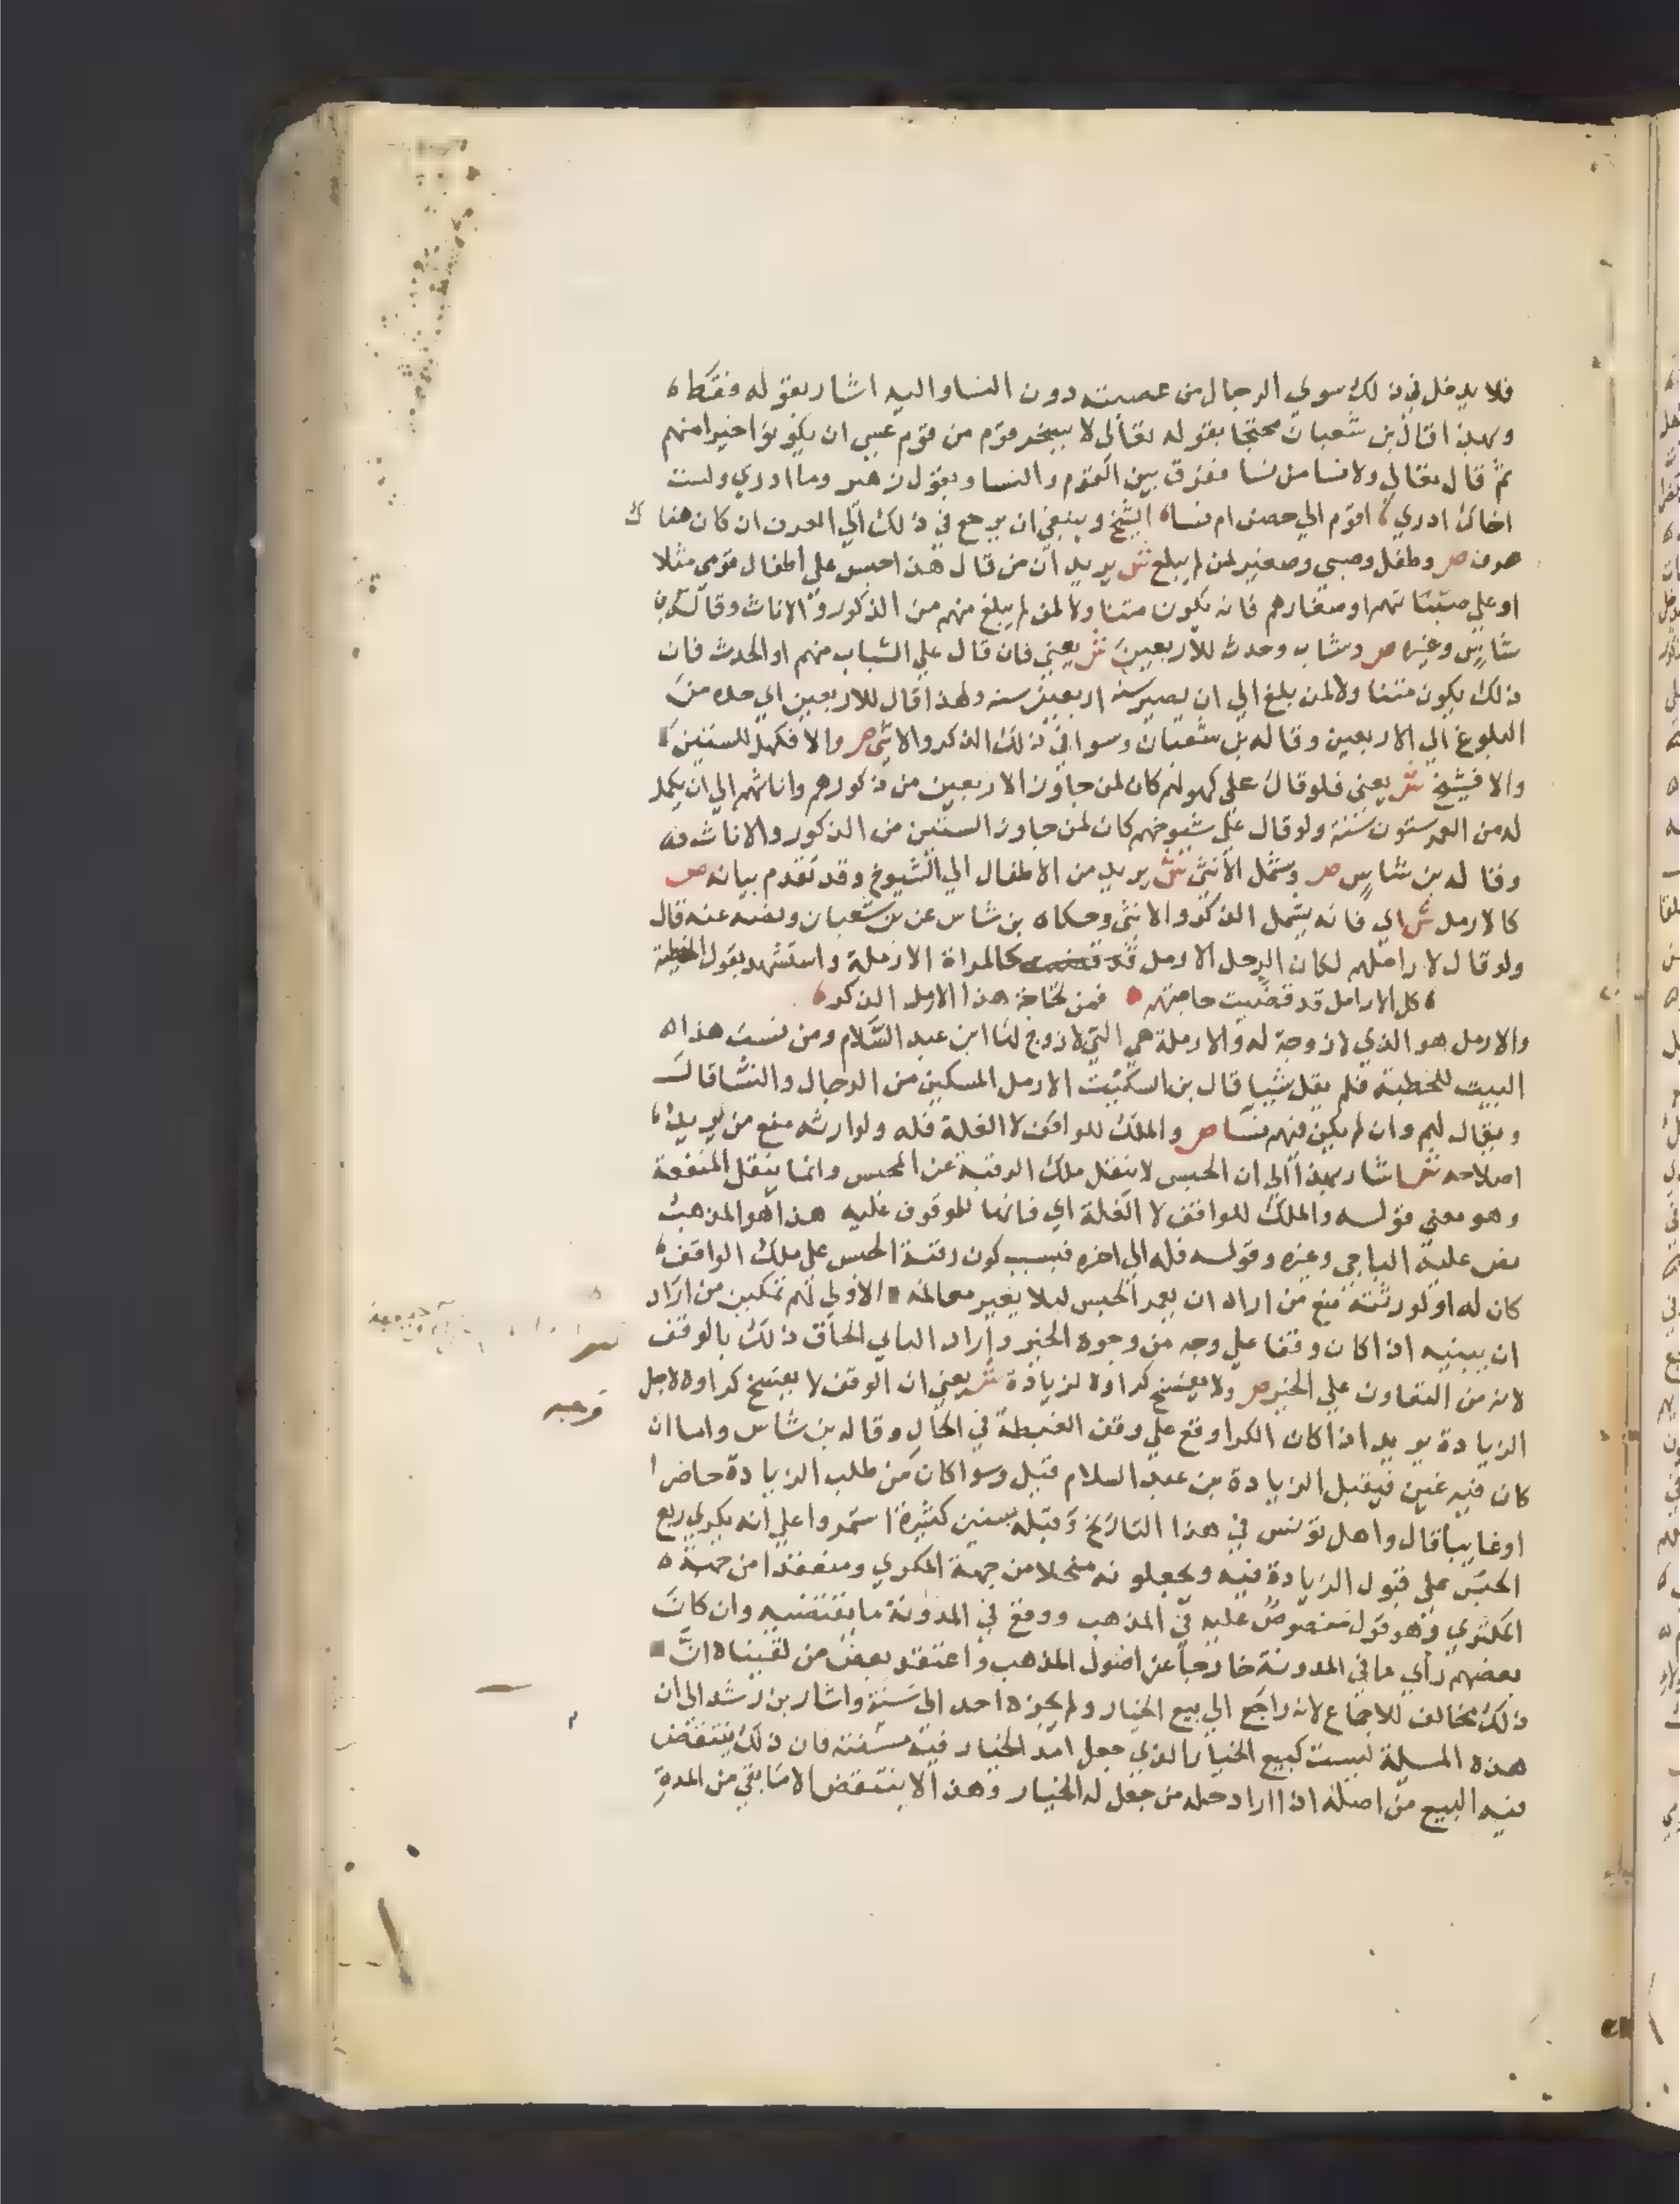 فلا يدخل في ذلك سوي الرجال من عصبته دون النسا واليه اشار بقوله فقط
وبهذا قال بن شعبان محتجا بقوله تعالي لا يسخر قوم من قوم عسي ان يكونوا خيرا منهم
ثم قال تعالي ولا نسا من نسا ففرق بين القوم والنسا وبقول زهير وما ادري ولست
اخال ادري اقوم ال حصن ام نسا الشيخ وينبغي ان يرجع في ذلك الي العرف ان كان هنا ك
عرف ص وطفل وصبي وصغير لمن لم يبلغ ش يريد ان من قال هذا حبس علي اطفال قومي مثلا
او علي صبيانهم او صغارهم فانه يكون متناولا لمن لم يبلغ منهم من الذكور والاناث وقاله بن
شاس وغيره ص وشاب وحدث للاربعين ش يعني فان قال علي الشباب منهم او الحدث فان
ذلك يكون متناولا لمن بلغ الي ان يصير سنه اربعين سنه ولهذا قال للاربعين اي حده من
البلوغ الي الاربعين وقاله بن شعبان وسوا في ذلك الذكر والانثي ص والا فكهل للستين
والا فشيخ ش يعني فلو قال علي كهولهم كان لمن جاوز الاربعين من ذكورهم واناثهم الي ان يكمل
له من العمر ستون سنة ولو قال علي شيوخهم كان لمن جاوز الستين من الذكور والاناث
وقاله بن شاس ص وشمل الانثي ش يريد من الاطفال الي الشيوخ وقد تقدم بيانه ص
كالارمل ش اي فانه يشمل الذكر والانثي وحكاه بن شاس عن بن شعبان ونصه عنه قال
ولو قال لاراملهم لكان الرجل الارمل كالمراة الارملة واستشهد بقول الحطية
كل الارامل قد قضيت حاجتهم فمن لحاجة هذا الارمل الذكر
والارمل هو الذي لا زوجة له والارملة هي التي لا زوج لها ابن عبد السلام ومن نسب هذا
البيت للحطية فلم يقل شيا قال بن السكيت الارمل المسكين من الرجال والنسا قال
ويقال لهم وان لم يكن فيهم نسا ص والملك للواقف لا الغلة فله ولوارثه منع من يريد
اصلاحه ش اشار بهذا الي ان الحبس لا ينقل ملك الرقبة عن المحبس وانما ينقل المنفعة
وهو معني قوله والملك للواقف لا الغلة اي فانها للموقوف عليه هذا هو المذهب
نص عليه الباجي وغيره وقوله فله الي اخره فبسبب كون رقبة الحبس علي ملك الواقف
كان له او لورثته منع من اراد ان يعمر الحبس ليلا يغير معالمه الاولي لهم تمكين من اراد
ان يبنيه اذا كان وقفا علي وجه من وجوه الخير واراد الباني الحاق ذلك بالوقف
لانه من التعاون علي الخير ص ولا يفسخ كراوه لزيادة ش يعني ان الوقف لا يفسخ كراوه لاجل
الزيادة يريد اذا كان الكرا وقع علي وقف الغبطة في الحال وقاله بن شاس واما ان
كان فيه غبن فيقبل الزيادة بن عبد السلام قبل وسوا كان من طلب الزيادة حاضرا
او غايبا قال واهل تونس في هذا التاريخ وقبله بسنين كثيرة استمروا علي انه يكري ربع
الحبس علي قبول الزيادة فيه ويجعلونه منحلا من جهة المكري ومنعقدا من جهة
المكتري وهو قول منصوص عليه في المذهب ووقع في المدونة ما يقتضيه وان كان
بعضهم راي ما في المدونة خارجا عن اصول المذهب واعتقد بعض من لقيناه ان
ذلك مخالف للاجماع لانه راجع الي بيع الخيار ولم يجزه احد الي سنة واشار بن رشد الي ان
هذه المسلة ليست كبيع الخيار الذي جعل امد الخيار فيه سنة فان ذلك ينتقض
فيه البيع من اصله اذا اراد حله من جعل له الخيار وهذا لا ينتقض الا ما بقي من المدة